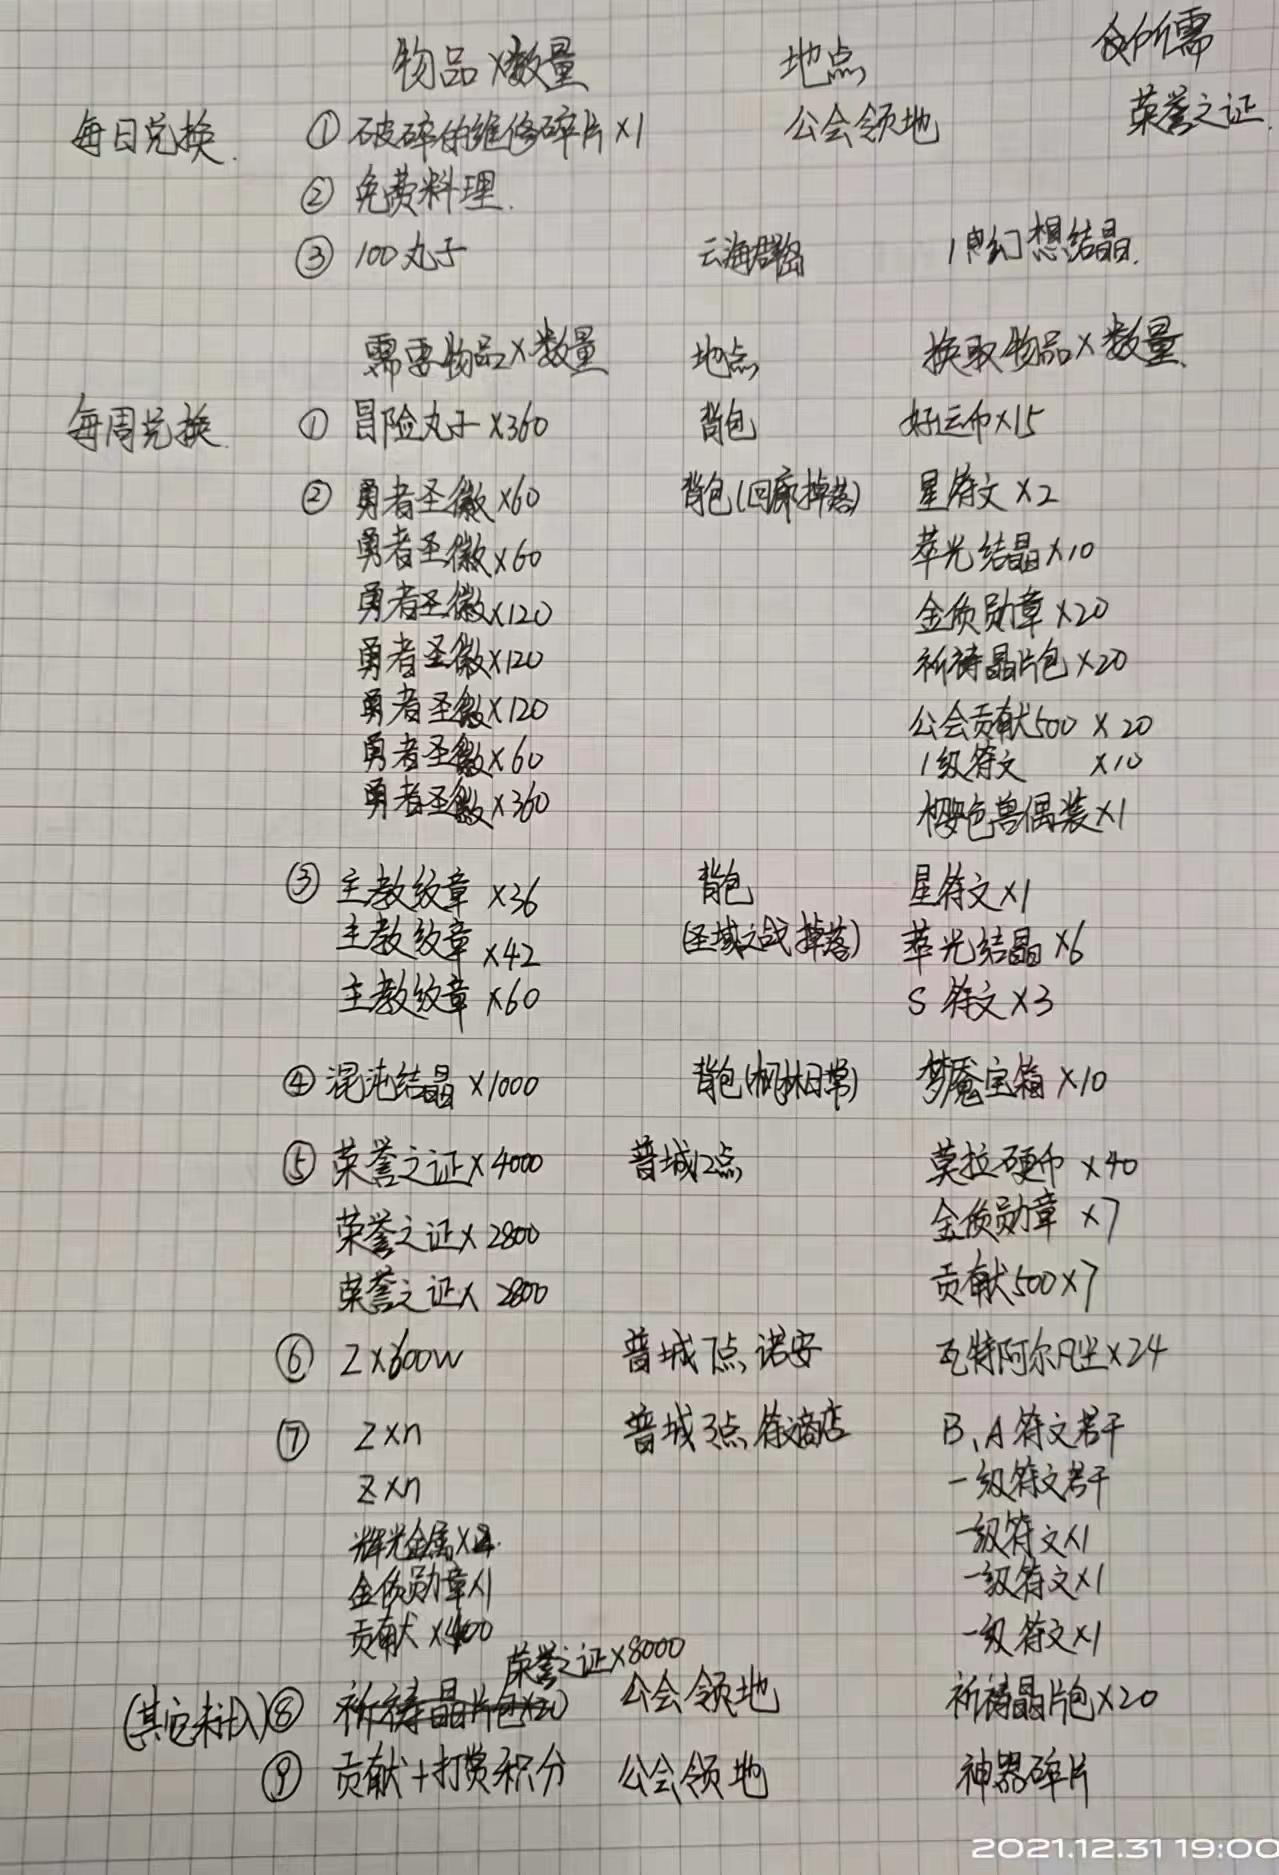 物品×数量 地点 所需
每日兑换. ①破碎的维修碎片×1 公会领地 荣誉之证.
②免费料理.
③100丸子 云海群岛 1 幻想结晶.
需要物品×数量 地点 换取物品×数量
每周兑换. ①冒险丸子×360 背包 好运币×15
②勇者圣徽×60 背包(回廊掉落) 星符文×2
勇者圣徽×60 萃光结晶×10
勇者圣徽×120 金质勋章×20
勇者圣徽×120 祈祷晶片包×20
勇者圣徽×120 公会贡献500 ×20
勇者圣徽×60 1级符文 ×10
勇者圣徽×360 色兽偶装×1
③主教纹章×36 背包 星符文×1
主教纹章×42 (圣域之战掉落) 萃光结晶×6
主教纹章×60 S符文×3
④混沌结晶×1000 背包(枫林日常) 梦魇宝箱×10
⑤荣誉之证×4000 普城12点 莫拉硬币×40
荣誉之证×2800 金质勋章×7
荣誉之证×2800 贡献500×7
⑥Z×600W 普城7点 诺安 瓦特阿尔凡尘×24
⑦Z×n 普城3点 符文商店 B、A符文若干
Z×n 一级符文若干
辉光金属× 一级符文×1
金质勋章×1 一级符文×1
贡献×400 一级符文×1
荣誉之证×8000
(其它未计入)⑧祈祷晶片包×20 公会领地 祈祷晶片包×20
⑨贡献+打赏积分 公会领地 神器碎片
2021.12.31 19:00